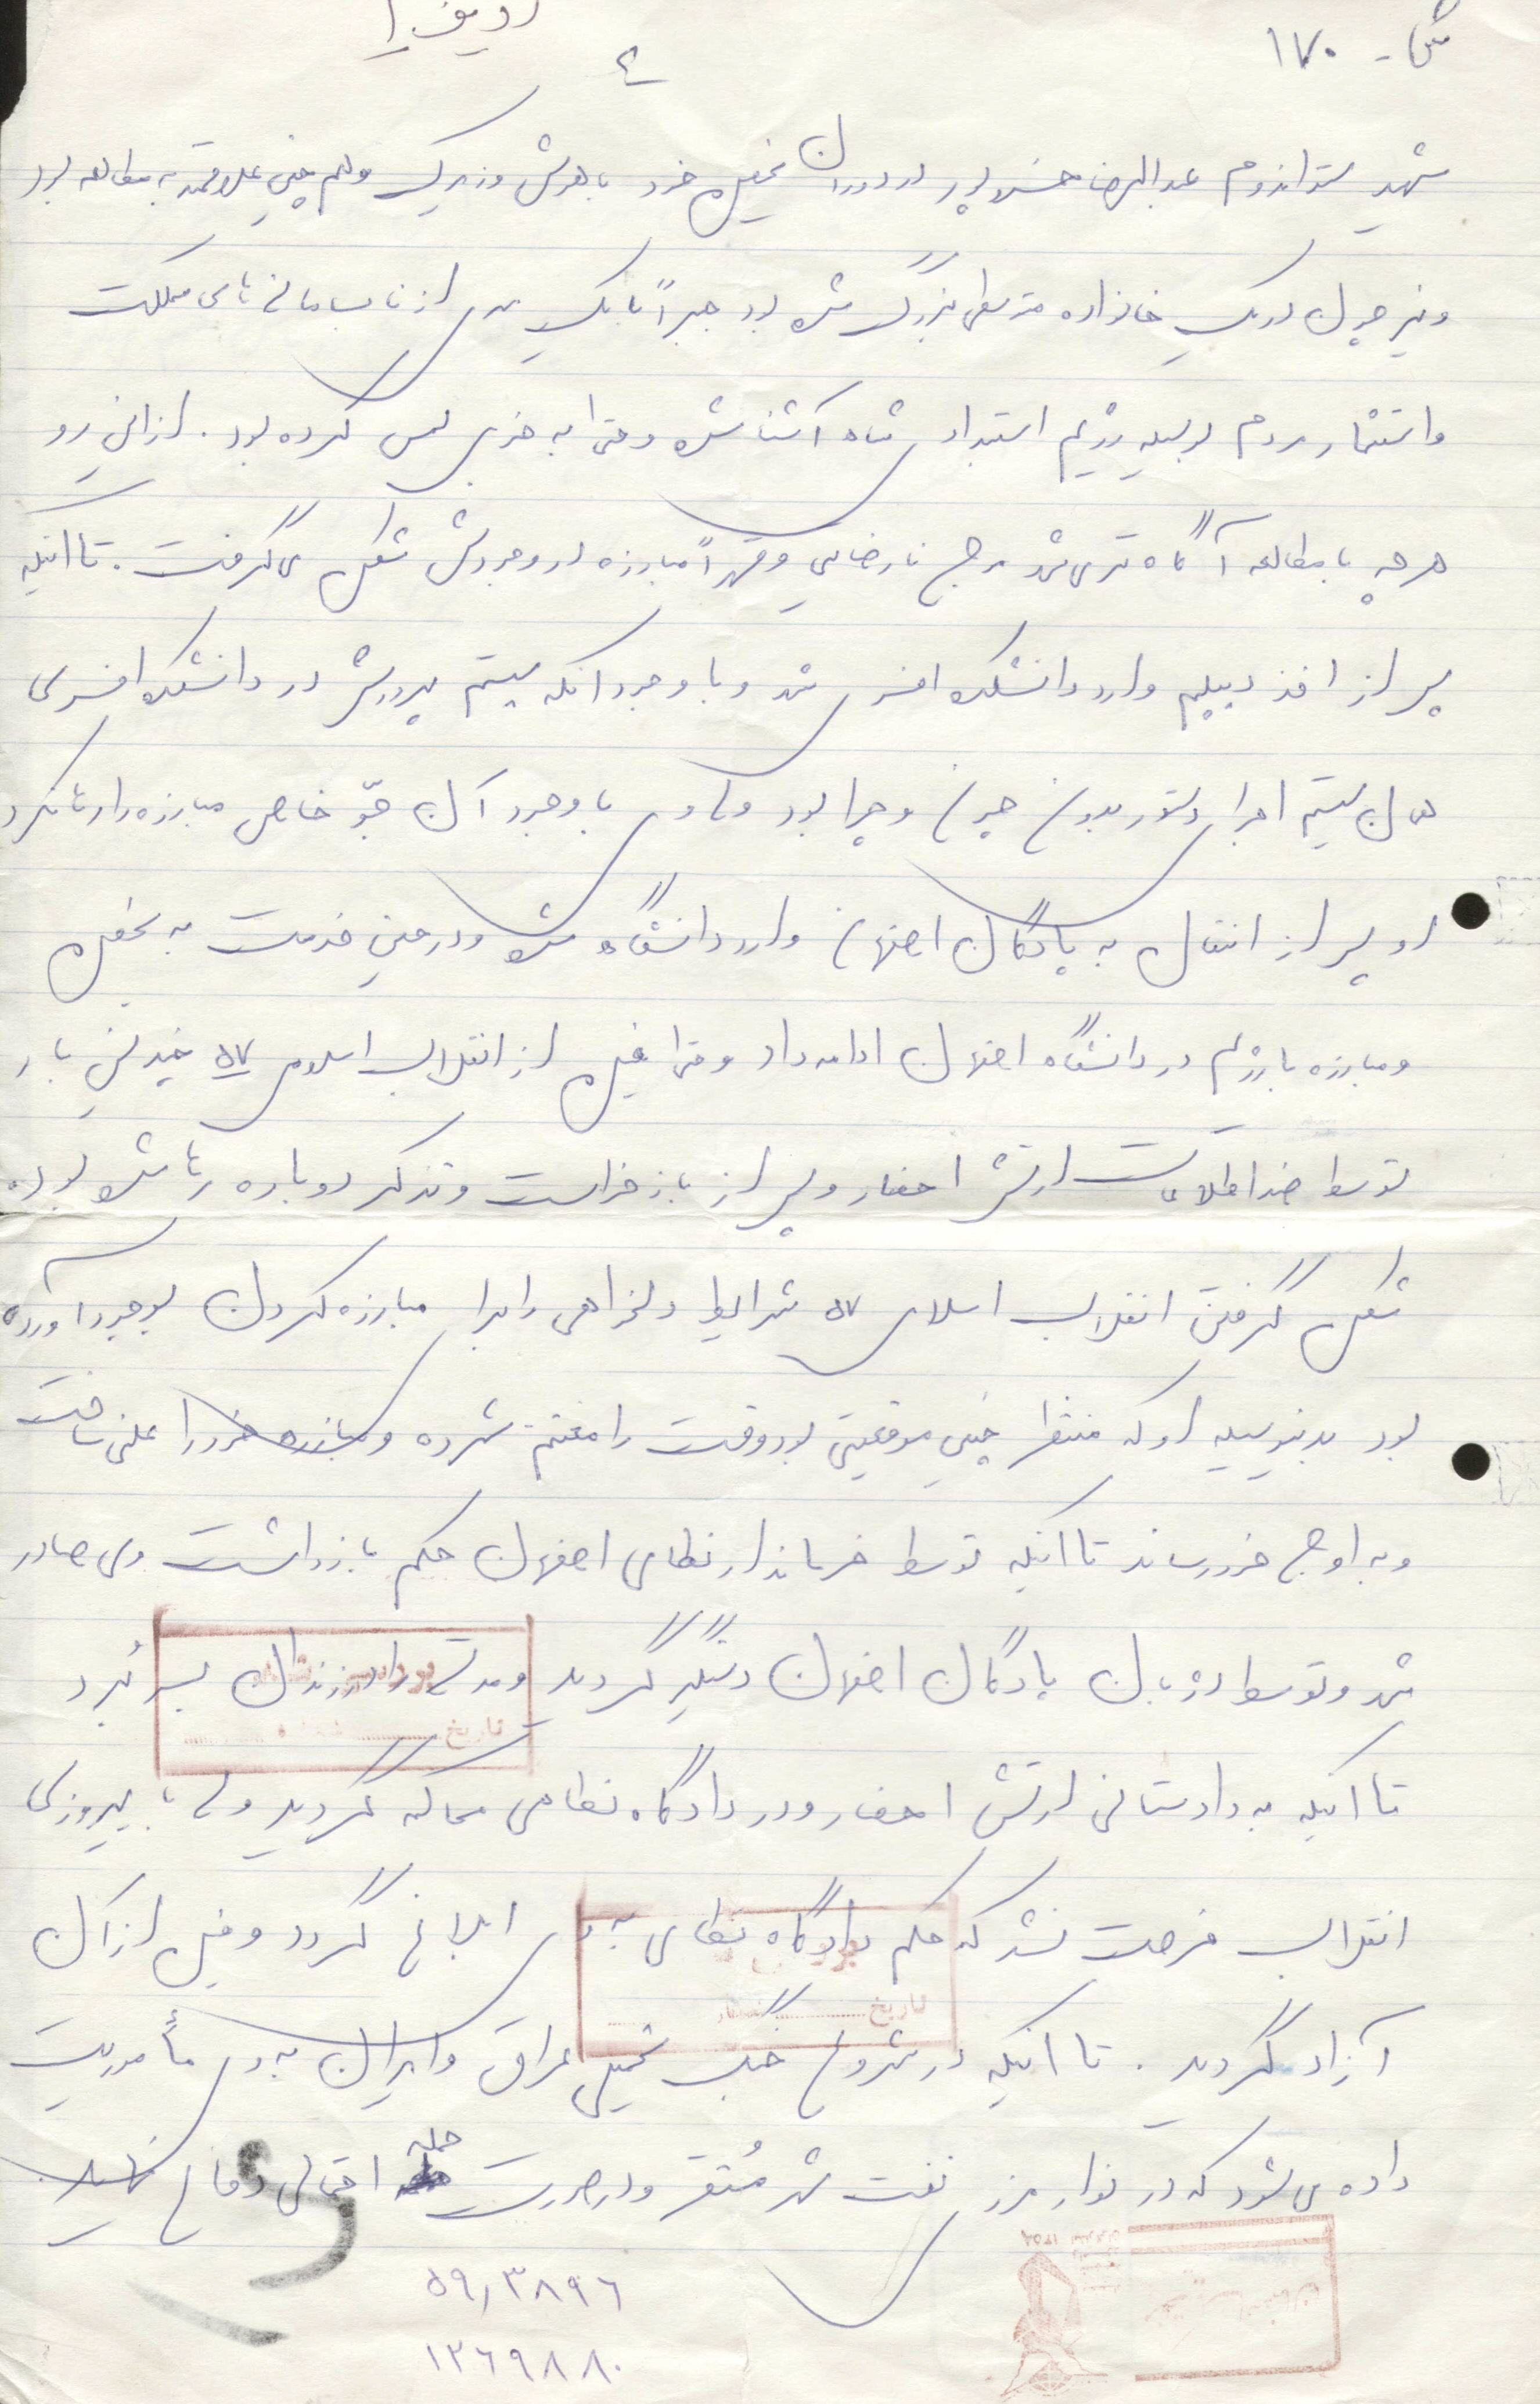 ش - ۱۷۰
ردیف ۱
۴
شهید ستواندوم عبدالرضا حسن‌پور در دوران تحصیل خود باهوش وزیرک وهم چنین علاقمند به مطالعه بود
ونیز چون در یک خانواده متوسطی بزرگ شده بود جبراً با یک سری از نابسامانی های مملکت
واستثمار مردم بوسیله رژیم استبدادی شاه آشنا شده وحتی به خوبی لمس کرده بود. از این رو
هر چه با مطالعه آگاه تر می شد موج نارضایی وقهراً مبارزه در وجودش شکل می گرفت. تا اینکه
پس از اخذ دیپلم وارد دانشکده افسری شد وبا وجود انکه سیستم پرورش در دانشکده افسری
همان سیستم اجرای دستور بدون چون وچرا بود ولی وی با وجود آن جوّ خاص مبارزه را رها نکرد
او پس از انتقال به پادگان اصفهان وارد دانشگاه شد ودر حین خدمت به تحصیل
ومبارزه با رژیم در دانشگاه اصفهان ادامه داد وحتی قبل از انقلاب اسلامی ۵۷ چندین بار
توسط ضد اطلاعات ارتش احضار وپس از بازخواست وتذکر دوباره رها شده بود
شکل گرفتن انقلاب اسلامی ۵۷ شرایط دلخواهی را برای مبارزه کردن بوجود آورده
بود بدینوسیله او که منتظر چنین موقعیتی بود وقت را مغتنم شمرده ومبارزه خود را علنی ساخت
وبه اوج خود رساند تا اینکه توسط فرماندار نظامی اصفهان حکم بازداشت وی صادر
شد وتوسط دژبان پادگان اصفهان دستگیر گردید ومدتی را در زندان بسر بُرد
تا اینکه به دادستانی ارتش احضار ودر دادگاه نظامی محاکمه گردید ولی با پیروزی
انقلاب فرصت نشد که حکم دادگاه نظامی به وی ابلاغ گردد وقبل از آن
آزاد گردید. تا اینکه در شروع جنگ تحمیلی عراق وایران به وی مأموریت
داده می شود که در نوار مرزی نفت شهر مُستقر ودر صورت حمله احتمالی دفاع نماید
۵۹٫۳۸۹۶
۱۳۶۹۸۸۰
تاریخ
تاریخ
۱۳۵۸